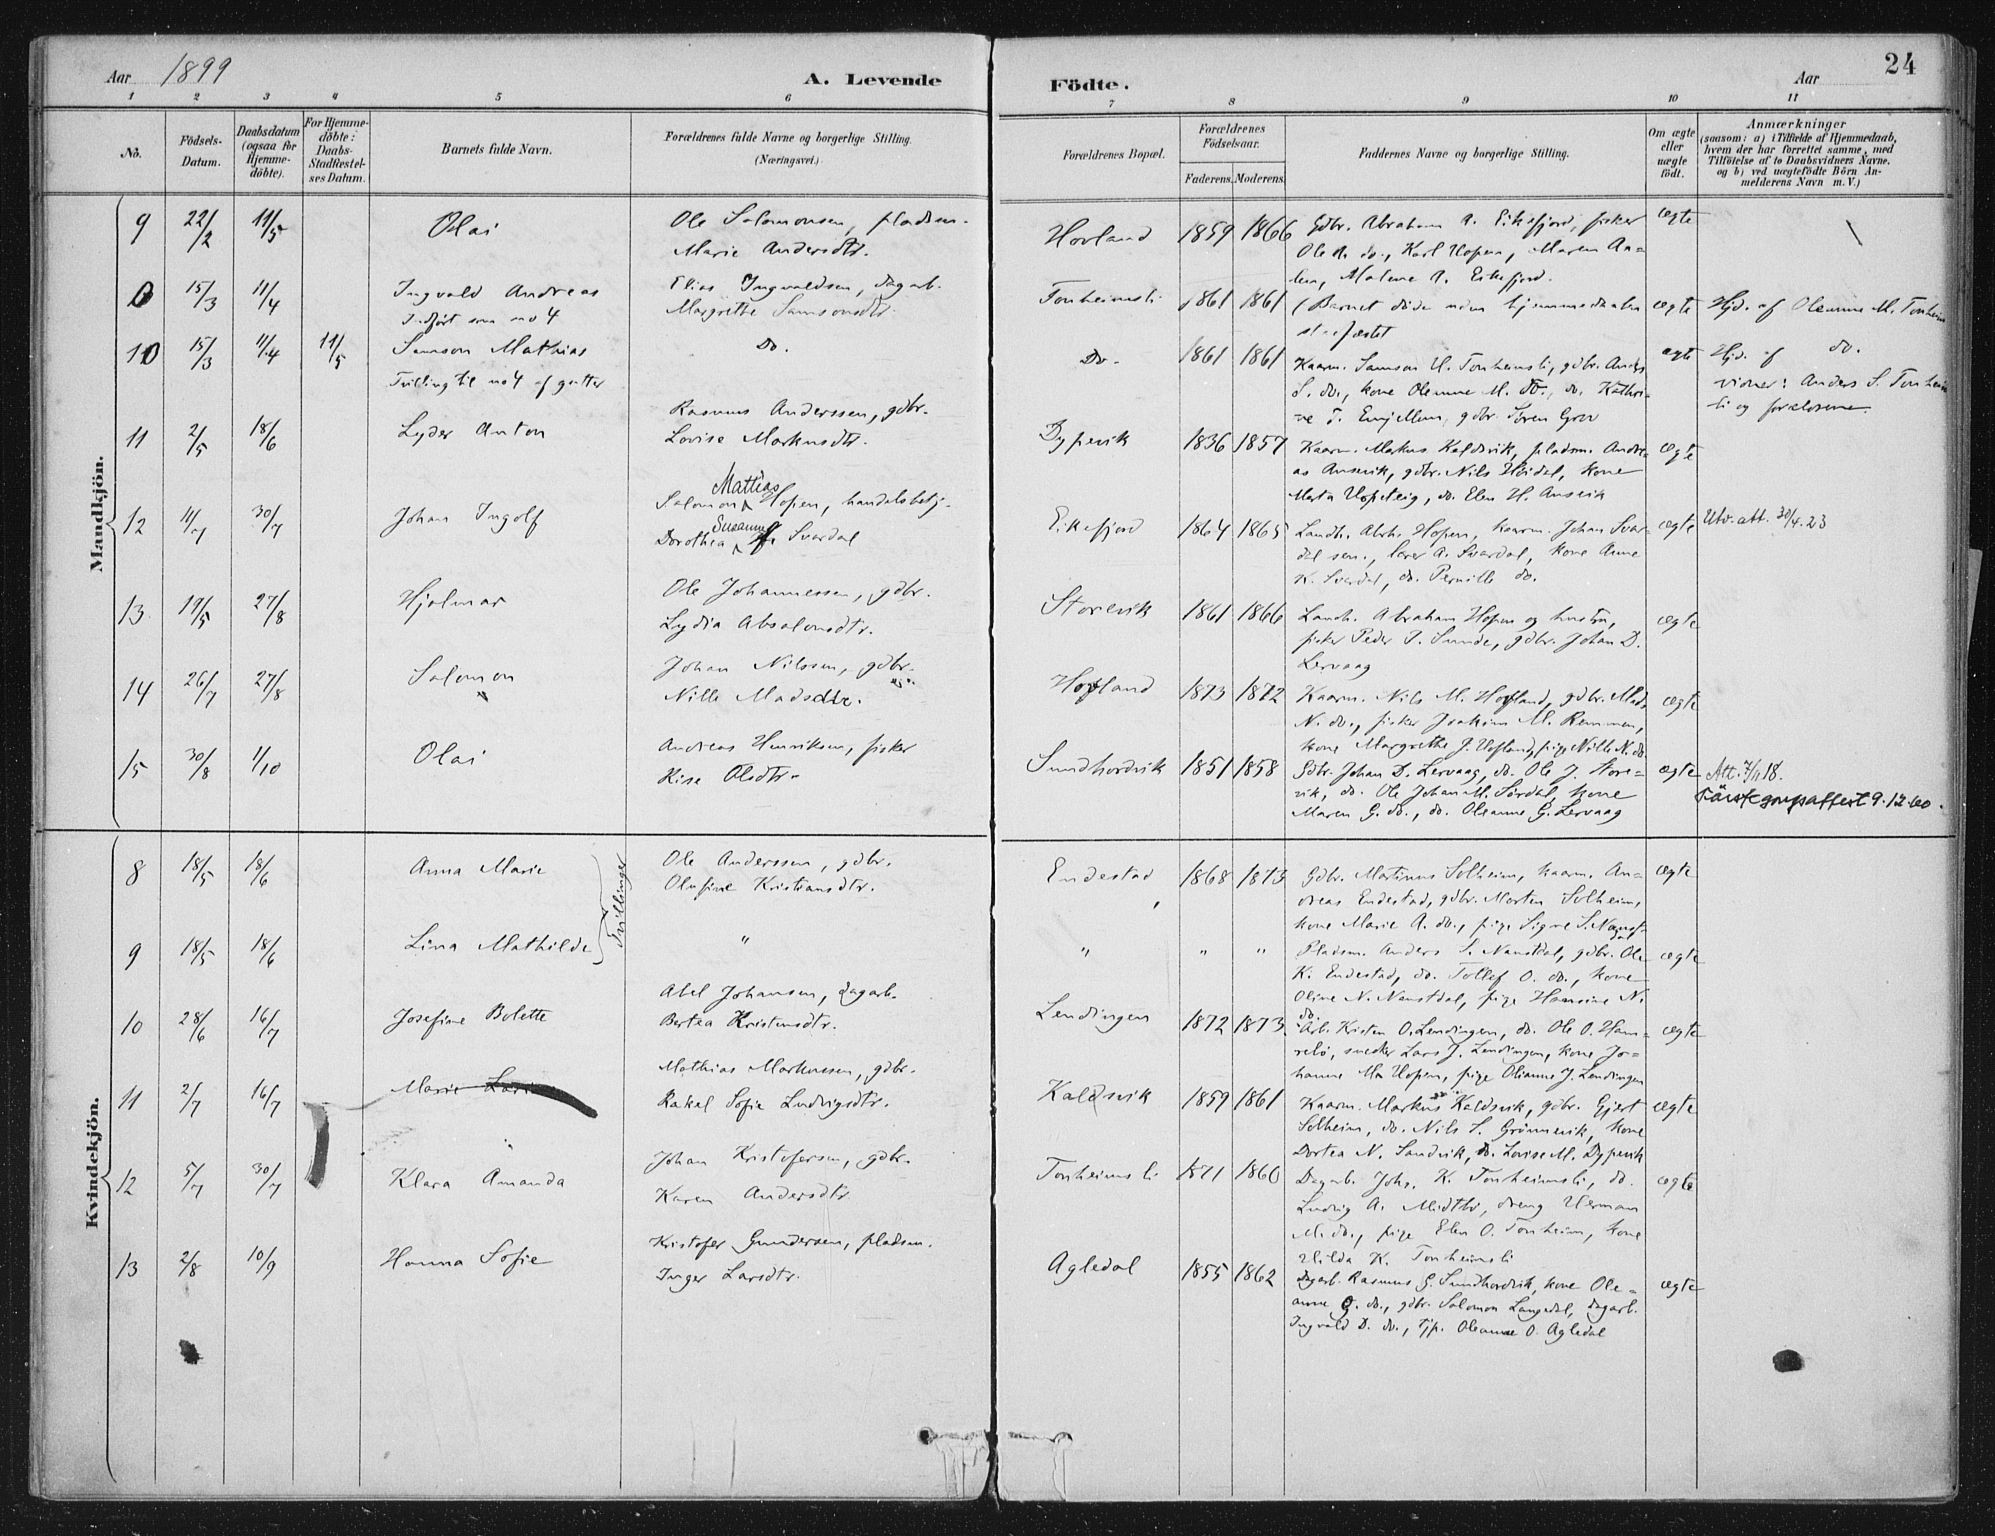 Aar 1899
A. Levende
Födte.
Aar
24
1 2 3 4 5 6 7 8 9 10 11
Nö.
Födsels-Datum.
Daabsdatum (ogsaa for Hjemme-döbte).
For Hjemme-döbte: Daabs-Stadfæstel-ses Datum.
Barnets fulde Navn.
Forældrenes fulde Navne og borgerlige Stilling. (Næringsvei.)
Forældrenes Bopæl.
Forældrenes Födselsaar.
Faderens. Moderens.
Faddernes Navne og borgerlige Stilling.
Om ægte eller uægte födt.
Anmærkninger
(saasom: a) i Tilfælde af Hjemmedaab, hvem der har forrettet samme, med Tilföielse af to Daabsvidners Navne. og b) ved uægtefödte Börn An-melderens Navn m.V.)
Mandkjön.
9 22/2 11/5 Olai
Ole Salomonsen, pladsm.
Marie Andersdtr.
Hovland 1859 1866
Gdbr. Abraham A. Eikefjord, fisker
Ole A. do., Karl Hopen, Maren An-
Malene A. Eikefjord.
ægte
15/3 11/4 Ingvald Andreas
Indført som no 4
Elias Ingvaldsen, dagarb.
Margrethe Samsonsdtr.
Tonheimsli 1861 1861
(Barnet døde uden hjemmedaaben
stadfæstet
ægte
Hjd. af Oleanne M. Tonheim
10 15/3 11/4 11/5 Samson Mathias
Tvilling til no 4 af gutter
Do.
Do. 1861 1861
Kaarm. Samson H. Tonheimsli, gdbr. Anders
S. do., kone Oleanne M. do., do. Kathri-
ne T. gdbr. Søren Grov
ægte
Hjd. af do.
vidner: Anders S. Tonheim
li og forældrene
11 2/5 18/6 Lyder Anton
Rasmus Anderssen, gdbr.
Lovise Markusdtr.
Dypevik 1836 1857
Kaarm. Makus Kaldsvik, pladsm. Andre-
as Ausevik, gdbr. Nils Høidal, kone
Marta Hopeteig, do. Elen H. Ausevik
ægte
12 11/7 30/7 Johan Ingolf
Mattias
Salomon Hopen, handelsbetj.
Susanne
Dorothea Svardal
Eikefjord 1864 1865
Landh. Abrh. Hopen, kaarm. Johan Svar-
dal sen., lærer A. Svardal, kone Anne
K. Svardal, do. Pernille do.
ægte
Utv. att. 30/4.23
13 19/5 27/8 Hjalmar
Ole Johannessen, gdbr.
Lydia Absalonsdtr.
Storevik 1861 1866
Landh. Abraham Hopen og hustru,
fisker Peder P. Sunde, gdbr. Johan D.
Lervaag
ægte
14 26/7 27/8 Salomon
Johan Nilssen, gdbr.
Nille Madsdtr.
Hovland 1873 1872
Kaarm. Nils M. Hovland, gdbr. Mads
N. do., fisker Joakim M. Remmen,
kone Margrethe J. Hovland, pige Nille N. do.
ægte
15 30/8 1/10 Olai
Andreas Henriksen, fisker
Olsdtr.
Sundhordvik 1851 1858
Gdbr. Johan D. Lervaag, do. Ole J. Store-
vik, do. Ole Johan M. Sørdal, kone
Maren G. do., do. Oleanne G. Lervaag
ægte
Att. 7/1 18.
9.12.60.
Kvindekjön.
8 18/5 18/6 Anna Marie
Tvillinger
Ole Anderssen, gdbr.
Olufine Kristiansdtr.
Endestad 1868 1873
Gdbr. Martinus Solheim, kaarm. An-
dreas Endestad, gdbr. Morten Solheim,
kone Marie A. do., pige Signe S. Naust-
dal
ægte
9 18/5 18/6 Lina Mathilde
" " " "
Pladsm. Anders S. Naustdal, gdbr. Ole
K. Endestad, do. Tollef O. do., kone
Oline N. Naustdal, pige Hansine N.
do.
ægte
10 28/6 16/7 Josefine Bolette
Abel Johansen, dagarb.
Bertea Kristensdtr.
Lendingen 1872 1873
Arb. Kristen O. Lendingen, do. Ole O. Ham-
relø, snedker Lars J. Lendingen, kone Jo-
hanne M. Hopen, pige Olianne J. Lendingen
ægte
11 2/7 16/7 Marie
Mathias Markussen, gdbr.
Rakel Sofie Ludvigsdtr.
Kaldsvik 1859 1861
Kaarm. Markus Kaldsvik, gdbr. Gjert
Solheim, do. Nils S. Grønnevik, kone
Dortea N. Sandvik, do. Lovise M. Dypevik
ægte
12 5/7 30/7 Klara Amanda
Johan Kristofersen, gdbr.
Karen Andersdtr.
Tonheimsli 1871 1860
Dagarb. Johs. K. Tonheimsli, do.
Ludvig A. Midtbø, dreng Herman
M. do., pige Elen O. Tonheim, kone
Hilda K. Tonheimsli
ægte
13 2/8 10/9 Hanna Sofie
Kristofer Gundersen, pladsm.
Inger Larsdtr.
Agledal 1855 1862
Dagarb. Rasmus G. Sundhordvik, kone Ole-
anne G. do., gdbr. Salomon Langedal, dagarb.
Ingvald D. do., tjp. Oleanne O. Agledal
ægte